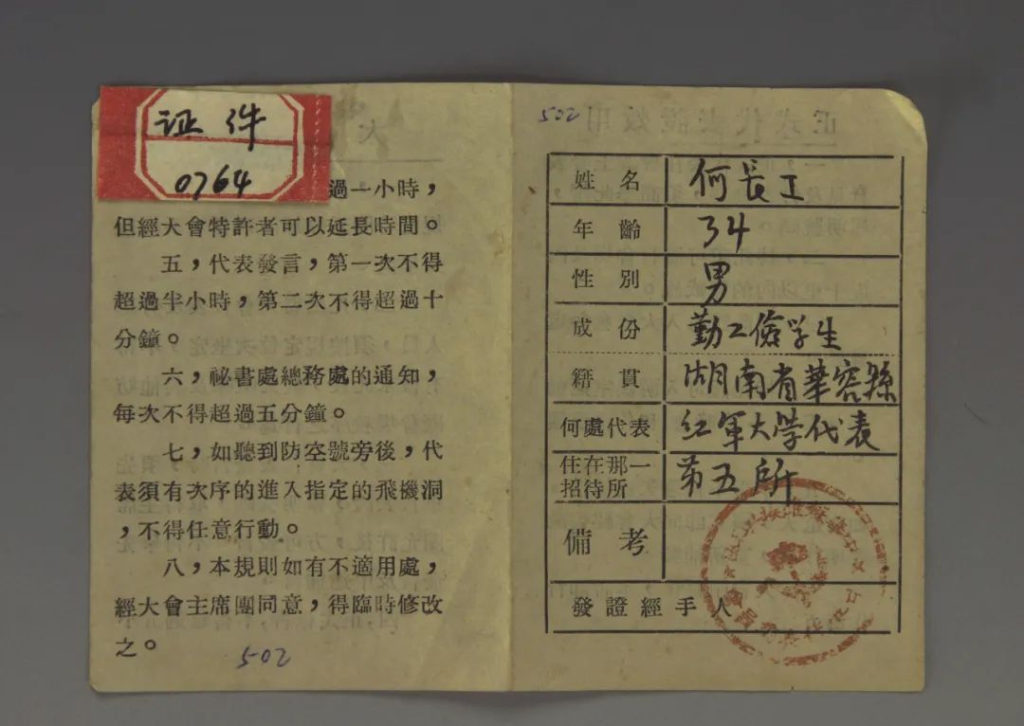 证件
0764
大
過一小時，
但經大會特許者可以延長時間。
五，代表發言，第一次不得
超過半小時，第二次不得超過十
分鐘。
六，祕書處總務處的通知，
每次不得超過五分鐘。
七，如聽到防空號旁後，代
表須有次序的進入指定的飛機洞
，不得任意行動。
八，本規則如有不適用處，
經大會主席團同意，得臨時修改
之。
502
502
姓名 何長工
年齡 34
性別 男
成份 勤工儉学生
籍貫 湖南省華容縣
何處代表 红軍大学代表
住在那一招待所 第五所
備考
發證經手人